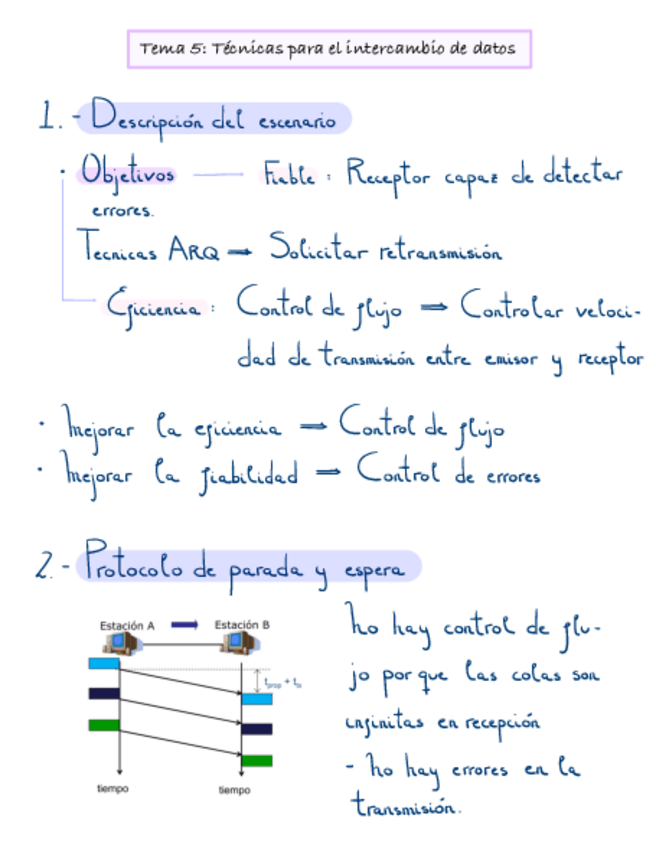 Tema 5: Técnicas para el intercambio de datos
1.- Descripción del escenario
· Objetivos — Fiable : Receptor capaz de detectar
errores.
Tecnicas ARQ → Solicitar retransmisión
Eficiencia : Control de flujo → Controlar veloci-
dad de transmisión entre emisor y receptor
· Mejorar la eficiencia → Control de flujo
· Mejorar la fiabilidad → Control de errores
2.- Protocolo de parada y espera
Estación A → Estación B
tprop + tix
tiempo
tiempo
No hay control de flu-
jo porque las colas son
infinitas en recepción
- No hay errores en la
transmisión.